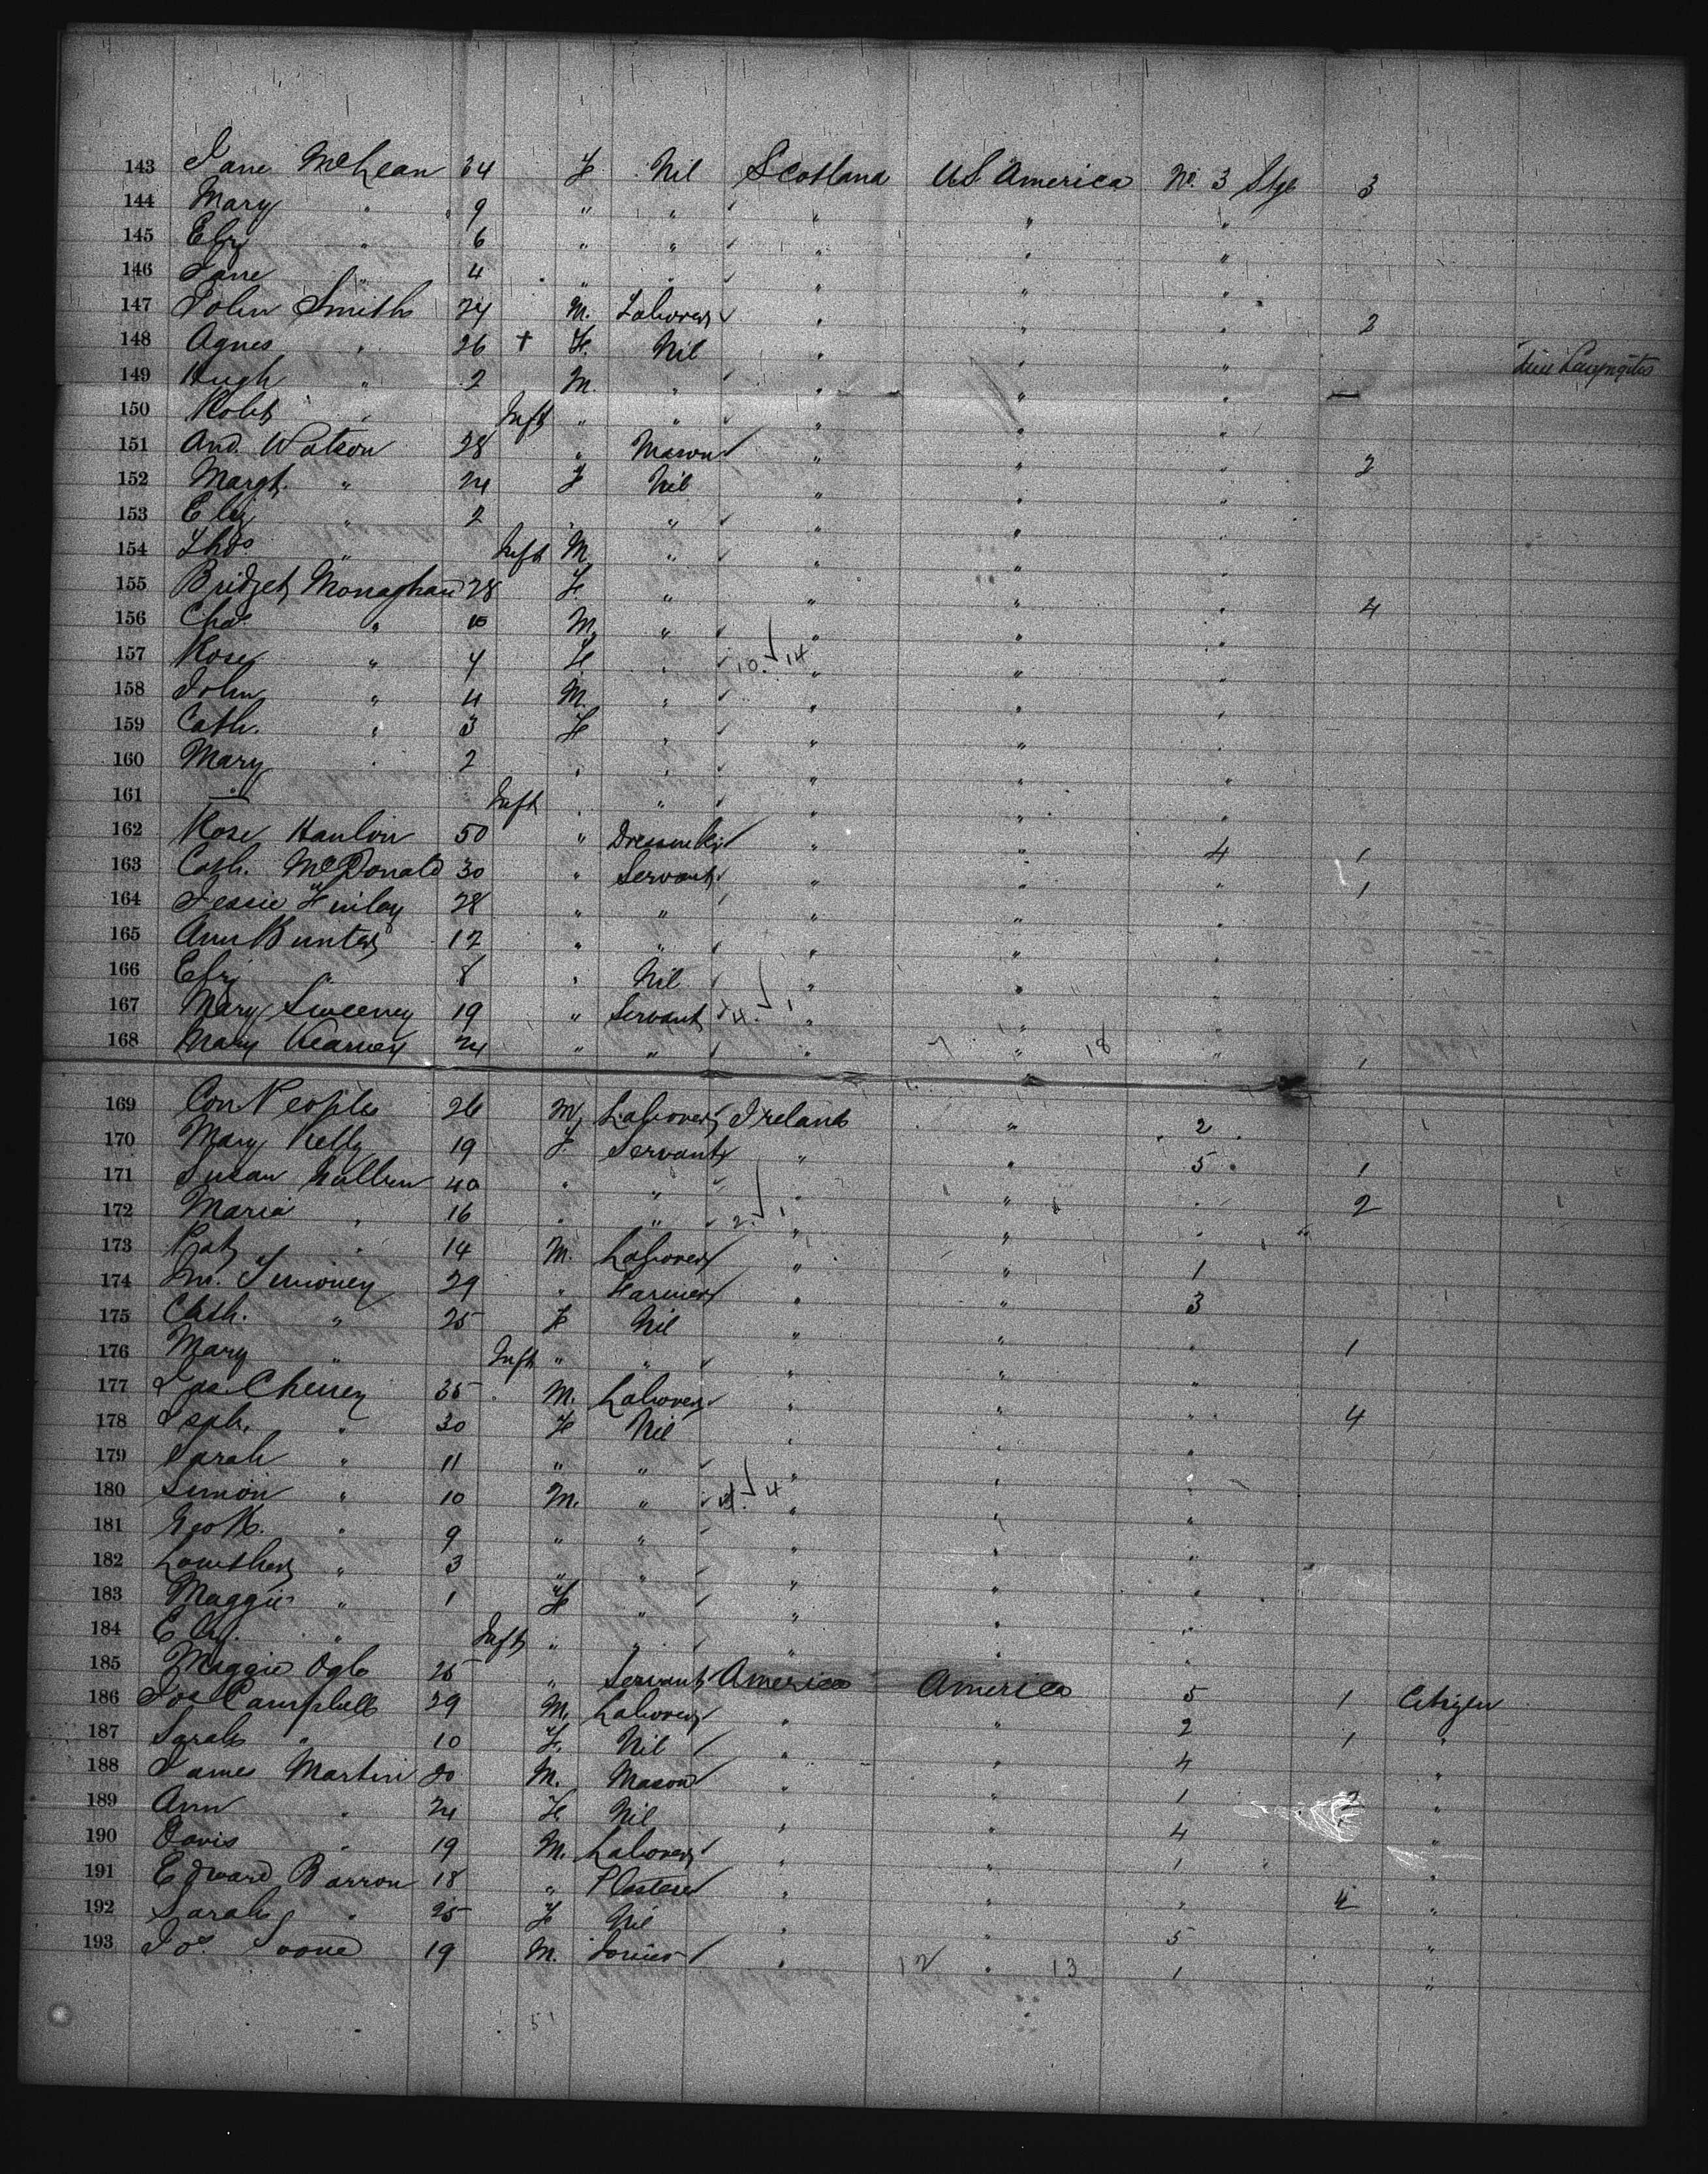 143 Jane McLean 34 F Nil Scotland US America No. 3 Stge 3
144 Mary " 9 " " " " "
145 Eliz " 6 " " " " "
146 Jane " 4 " " " " "
147 John Smith 24 M. Laborer " " " 2
148 Agnes " 26 + F. Nil " " " Laryngitis
149 Hugh " 2 M. " " " " —
150 Robt " Inft " " " " "
151 And. Watson 28 " Mason " " " 2
152 Margt. " 24 F Nil " " "
153 Eliz " 2 " " " " "
154 Thos " Inft M " " " "
155 Bridget Monaghan 28 F. " " " " 4
156 Chas " M. " " " "
157 Rose " 4 F " 10. 14 " " "
158 John " 4 M. " " " "
159 Cath. " 3 F " " " "
160 Mary " 2 " " " " "
161 — " Inft " " " " "
162 Rose Hanlon 50 " Dressmkr " " 4 1
163 Cath. McDonald 30 " Servant " " " 1
164 Jessie Finlay 28 " " " " "
165 Ann Bunter 17 " " " " "
166 Eliz " 8 " Nil " " "
167 Mary Sweeney 19 " Servant 4. 1 " " "
168 Mary Kearney 24 " " " 7 " 18 " 1
169 Con Peoples 26 M, Laborer Ireland " 2
170 Mary Kelly 19 F. Servant " " 5 1
171 Susan Gallen 40 " " " " " 2
172 Maria " 16 " " 2. 1 " " "
173 Pat " 14 M. Laborer " " 1
174 29 " Farmer " " 3
175 Cath. " 25 F Nil " " "
176 Mary " Inft " " " " " 1
177 Jas. 35 M. Laborer " " " 4
178 " 30 F Nil " " "
179 Sarah " 11 " " " " "
180 Simon " 10 M. " 4 " " "
181 Geo " 9 " " " " "
182 Lowther " 3 " " " " "
183 Maggie " 1 F " " " "
184 Eliz. " Inft " " " " "
185 Maggie Ogle 25 " Servant America America 5 1 Citizen
186 Jos Campbell 29 M. Laborer " " 2 1 "
187 Sarah " 10 F. Nil " " 4 "
188 James Martin 20 M. Mason " " 1 2 "
189 Ann " 24 F. Nil " " 4 "
190 Davis " 19 M. Laborer " " 1 "
191 Edward Barron 18 " Plasterer " " " "
192 Sarah " 25 F Nil " " 5 "
193 Jos. 19 M. Joiner " 12 " 13 1 "
51